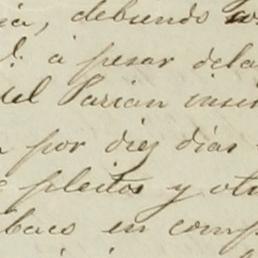 debiendo
á pesar dela
del Parian insi
por diez dias
pleitos y otr
en comp